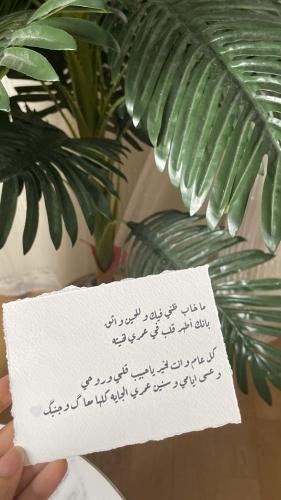 ما خاب ظني فيك و للحين واثق
بانك أطهر قلب في عمري لقيته
كل عام و انت بخير ياحبيب قلبي وروحي
و عسى ايامي و سنين عمري الجايه كلها معاك وجنبك